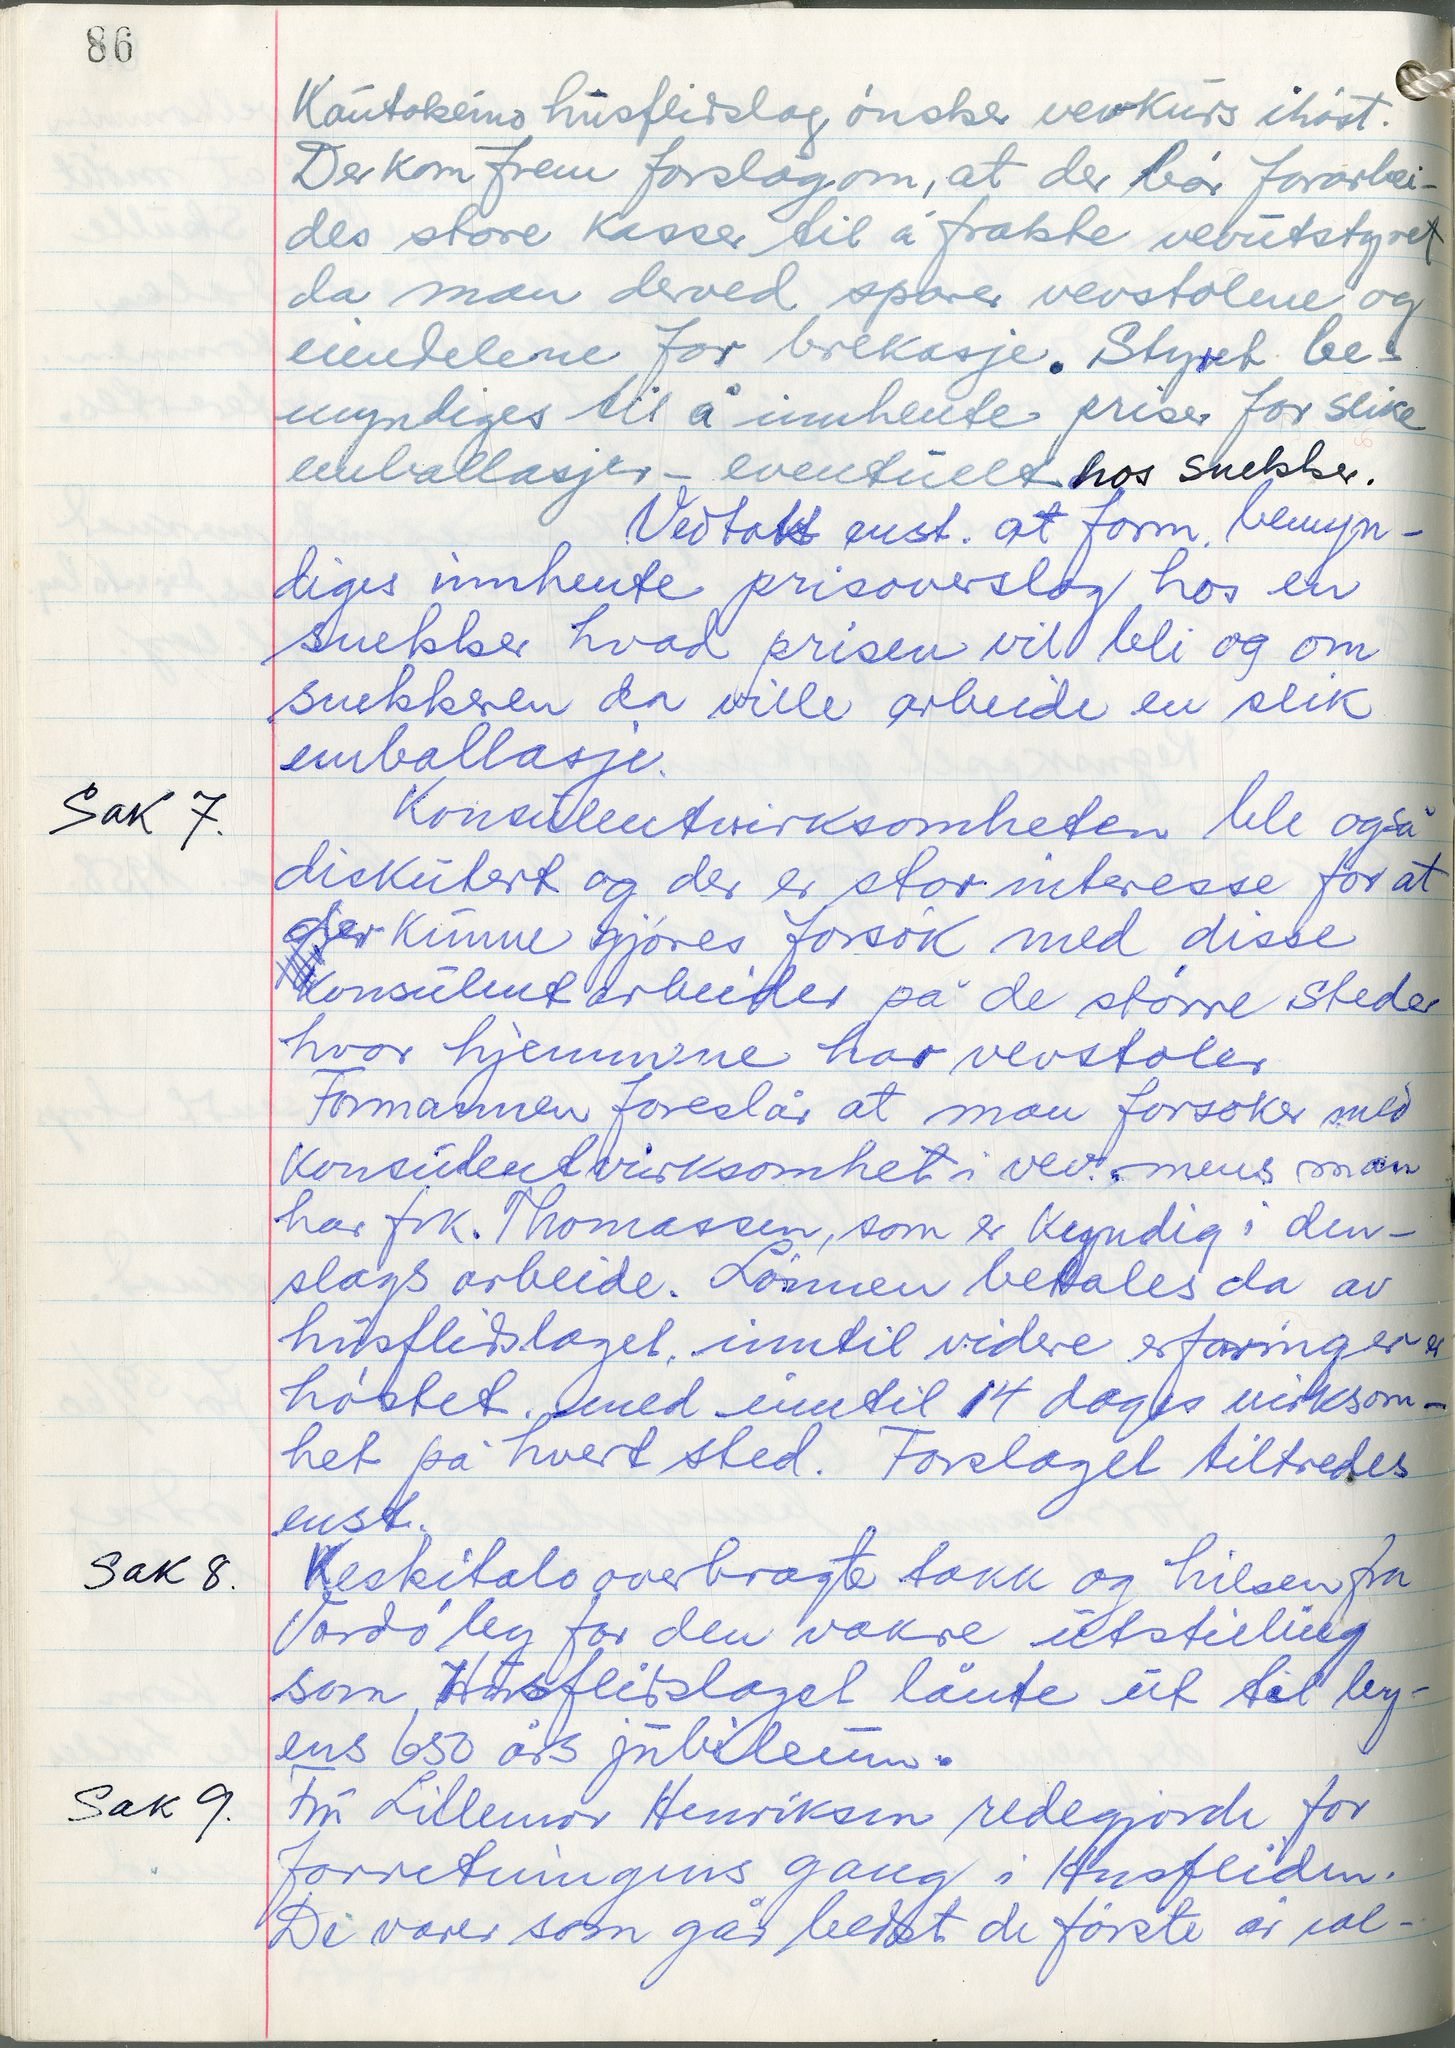 86
Kautokeino husflidslag ønsker vevkurs i høst.
Der kom frem forslag om, at der bør forarbei-
des store kasser til å frakte vevutstyret
da man derved sparer vevstolene og
eiendelene for brekasje. Styret be-
myndiges til å innhente priser for slike
emballasjer - eventuelt hos snekker.
Vedtatt enst. at form. bemyn-
diges innhente prisoverslag hos en
snekker hvad prisen vil bli og om
snekkeren da ville arbeide en slik
emballasje.
Sak 7. Konsulentvirksomheten ble også
diskutert og der er stor interesse for at
der kunne gjøres forsøk med disse
konsulentarbeider på de større steder
hvor hjemmene har vevstoler
Formannen foreslår at man forsøker med
konsulentvirksomhet i vev. mens man
har frk. Thomassen, som er kyndig i den-
slags arbeide. Lønnen betales da av
husflidslaget, inntil videre erfaringer er
høstet. med inntil 14 dages virksom-
het på hvert sted. Forslaget tiltredes
enst.
Sak 8. Keskitalo overbragte takk og hilsen fra
Vardø by for den vakre utstilling
som Husflidslaget lånte ut til by-
ens 650 års jubileum.
Sak 9. Fru Lillemor Henriksen redegjorde for
forretningens gang i Husfliden.
De varer som går bedst de første år